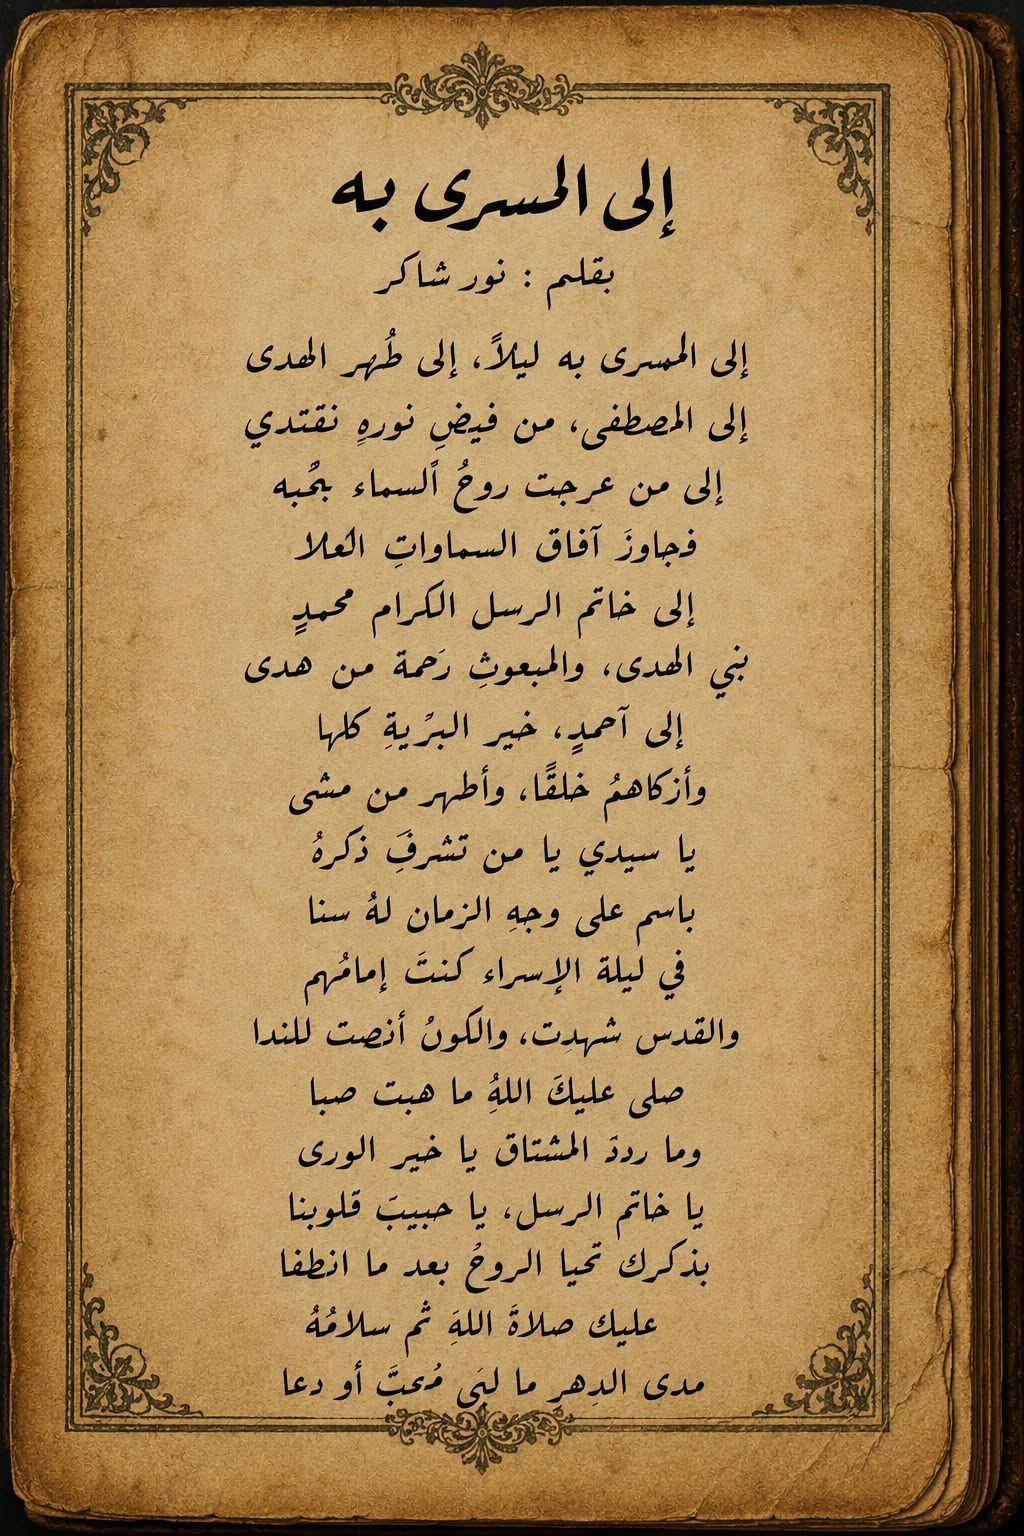 إلى المسرى به
بقلم : نور شاكر
إلى المسرى به ليلاً، إلى طُهر الهدى
إلى المصطفى، من فيضِ نورهِ نقتدي
إلى من عرجت روحُ السماء بحُبه
فجاوزَ آفاق السماواتِ العُلا
إلى خاتم الرسل الكرام محمدٍ
نبي الهدى، والمبعوثِ رَحمة من هدى
إلى آحمدٍ، خير البرِّيةِ كلها
وأزكاهمُ خلقًا، وأطهر من مشى
يا سيدي يا من تشرفَِ ذكرهُ
باسم على وجهِ الزمان لهُ سنا
في ليلة الإسراء كنتَ إمامُهم
والقدس شهدِت، والكونُ أنصت للندا
صلى عليكَ اللهُِ ما هبت صبا
وما رددَ المشتاق يا خير الورى
يا خاتم الرسل، يا حبيبَ قلوبنا
بذكرك تحيا الروحُ بعد ما انطفا
عليك صلاةَ اللهَِ ثم سلامُهُ
مدى الدِهر ما لبَى مُحبَّ أو دعا